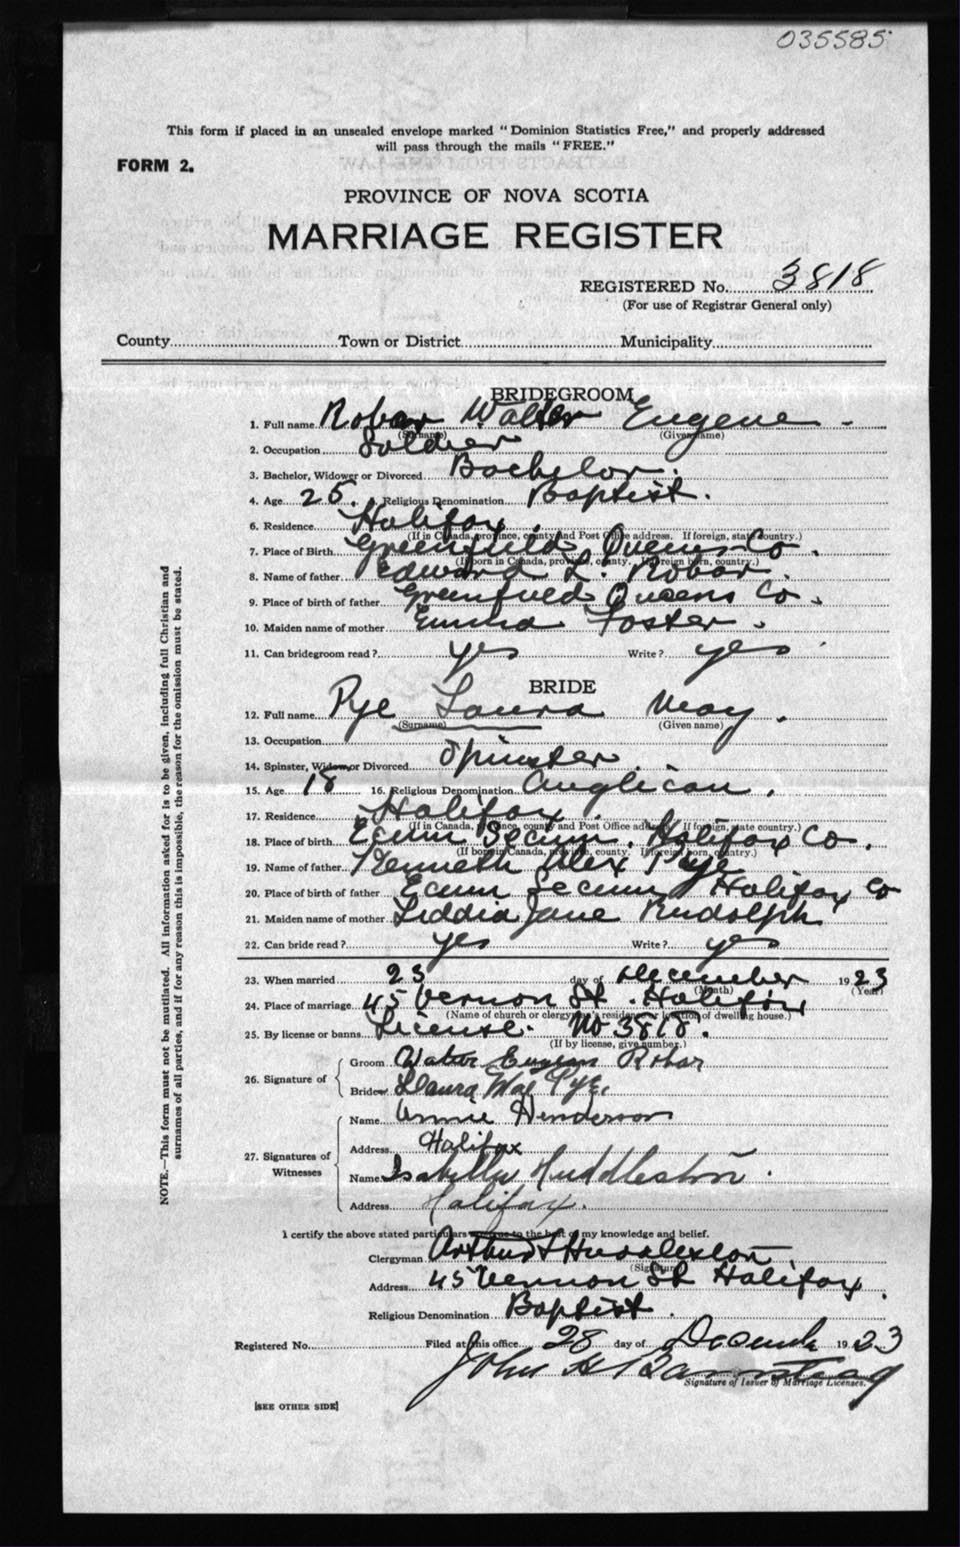 035585
This form if placed in an unsealed envelope marked "Dominion Statistics Free," and properly addressed
will pass through the mails "FREE."
FORM 2.
PROVINCE OF NOVA SCOTIA
MARRIAGE REGISTER
REGISTERED No. 3818
(For use of Registrar General only)
County Town or District Municipality
BRIDEGROOM
1. Full name Robar Walter Eugene
(Surname) (Given name)
2. Occupation Soldier
3. Bachelor, Widower or Divorced Bachelor.
4. Age 25. Religious Denomination Baptist.
6. Residence Halifax.
(If in Canada, province, county and Post Office address. If foreign, state country.)
7. Place of Birth Greenfield Queens Co.
(If born in Canada, province, county. If foreign born, country.)
8. Name of father Edward L. Robar
9. Place of birth of father Greenfield Queens Co.
10. Maiden name of mother Emma Foster.
11. Can bridegroom read? yes Write? yes
BRIDE
12. Full name Pye Laura May.
(Surname) (Given name)
13. Occupation
14. Spinster, Widow or Divorced Spinster
15. Age 18 16. Religious Denomination Anglican.
17. Residence Halifax.
(If in Canada, province, county and Post Office address. If foreign, state country.)
18. Place of birth Ecum Secum. Halifax Co.
(If born in Canada, province, county. If foreign born, country.)
19. Name of father Kenneth Alex Pye
20. Place of birth of father Ecum Secum Halifax Co
21. Maiden name of mother Liddia Jane Rudolph
22. Can bride read? yes Write? yes
23. When married 23 day of December 1923
(Month) (Year)
24. Place of marriage 45 Vernon St. Halifax
(Name of church or clergyman's residence or location of dwelling house.)
25. By license or banns License. No 3818.
(If by license, give number.)
26. Signature of
Groom Walter Eugean Robar
Bride Laura Mae Pye.
27. Signatures of Witnesses
Name Annie Henderson
Address Halifax
Name Isabella Huddleston.
Address Halifax.
I certify the above stated particulars are true to the best of my knowledge and belief.
Clergyman Arthur Huddleston
(Signature)
Address 45 Vernon St Halifax.
Religious Denomination Baptist.
Registered No. Filed at this office 28 day of December 1923
John H Barnstead
Signature of Issuer of Marriage Licenses.
[SEE OTHER SIDE]
NOTE.—This form must not be mutilated. All information asked for is to be given, including full Christian and
surnames of all parties, and if for any reason this is impossible, the reason for the omission must be stated.